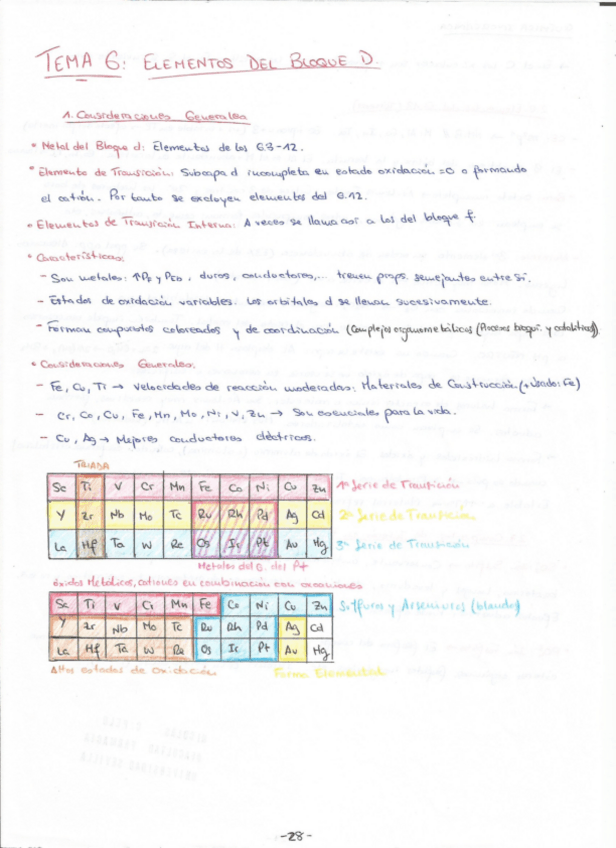 TEMA 6: ELEMENTOS DEL BLOQUE D
1. Consideraciones Generales
• Metal del Bloque d: Elementos de los G3-12.
• Elemento de Transición: Subcapa d incompleta en estado oxidación =0 o formando
el catión. Por tanto se excluyen elementos del G.12.
• Elementos de Transición Interna: A veces se llama así a los del bloque f.
• Características:
- Son metales: ↑PF y PEb, duros, conductores,... tienen props. semejantes entre sí.
- Estados de oxidación variables. Los orbitales d se llenan sucesivamente.
- Forman compuestos coloreados y de coordinación (Complejos organometálicos (Procesos bioquí. y catalíticos).
• Consideraciones Generales:
- Fe, Cu, Ti → Velocidades de reacción moderadas: Materiales de Construcción (+ Usado: Fe)
- Cr, Co, Cu, Fe, Mn, Mo, Ni, V, Zn → Son esenciales para la vida.
- Cu, Ag → Mejores conductores eléctricos.
TRIADA
Sc Ti V Cr Mn Fe Co Ni Cu Zn 1ª Serie de Transición
Y Zr Nb Mo Tc Ru Rh Pd Ag Cd 2ª Serie de Transición
La Hf Ta W Re Os Ir Pt Au Hg 3ª Serie de Transición
Metales del G. del Pt
óxidos Metálicos, cationes en combinación con oxoaniones
Sc Ti V Cr Mn Fe Co Ni Cu Zn Sulfuros y Arseniuros (blandos)
Y Zr Nb Mo Tc Ru Rh Pd Ag Cd
La Hf Ta W Re Os Ir Pt Au Hg
Altos estados de Oxidación Forma Elemental
-28-